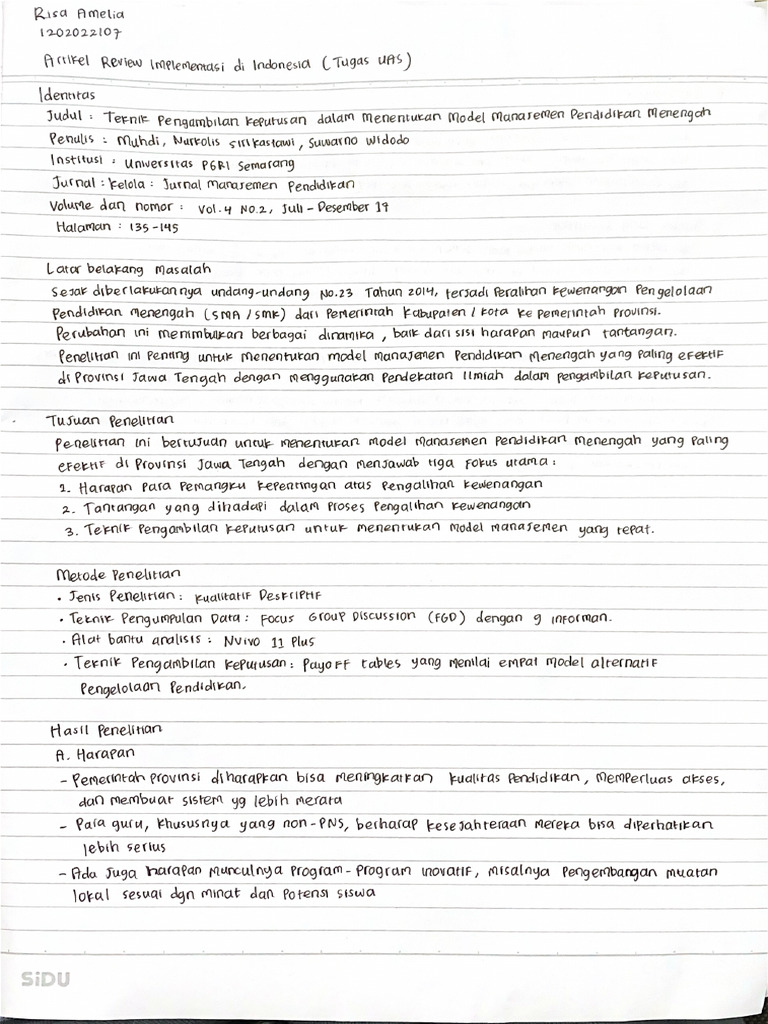 Risa Amelia
1202022107
Artikel Review Implementasi di Indonesia (Tugas UAS)
Identitas
Judul : Teknik Pengambilan Keputusan dalam Menentukan Model Manajemen Pendidikan Menengah
Penulis : Muhdi, Nurkolis Srikastawi, Suwarno Widodo
Institusi : Universitas PGRI Semarang
Jurnal : Kelola : Jurnal Manajemen Pendidikan
Volume dan nomor : Vol. 4 No.2, Juli - Desember 17
Halaman : 135-145
Latar belakang Masalah
Sejak diberlakukannya undang-undang No.23 Tahun 2014, terjadi Peralihan Kewenangan Pengelolaan
Pendidikan menengah (SMA / SMK) dari Pemerintah Kabupaten / Kota ke pemerintah Provinsi.
Perubahan ini menimbulkan berbagai dinamika , baik dari sisi harapan maupun tantangan.
Penelitian ini Penting untuk menentukan model manajemen Pendidikan Menengah yang Paling efektif
di Provinsi Jawa Tengah dengan menggunakan Pendekatan Ilmiah dalam pengambilan keputusan.
Tujuan Penelitian
Penelitian Ini bertujuan untuk menentukan model Manajemen Pendidikan Menengah yang Paling
efektif di Provinsi Jawa Tengah dengan menjawab tiga Fokus utama :
1. Harapan Para Pemangku Kepentingan atas Pengalihan Kewenangan
2. Tantangan yang dihadapi dalam Proses Pengalihan Kewenangan
3. Teknik Pengambilan Keputusan untuk menentukan Model manajemen yang tepat.
Metode Penelitian
• Jenis Penelitian : Kualitatif Deskriptif
• Teknik Pengumpulan Data : Focus Group Discussion (FGD) dengan 9 informan.
• Alat bantu analisis : NVivo 11 Plus
• Teknik Pengambilan Keputusan : Payoff tables yang menilai empat model alternatif
Pengelolaan Pendidikan.
Hasil Penelitian
A. Harapan
- Pemerintah Provinsi diharapkan bisa meningkatkan kualitas Pendidikan, memperluas akses,
dan membuat sistem yg lebih merata
- Para guru, khususnya yang non-PNS, berharap kesejahteraan mereka bisa diperhatikan
lebih serius
- Ada Juga harapan munculnya Program-Program inovatif, misalnya Pengembangan muatan
lokal sesuai dgn minat dan Potensi siswa
SiDU